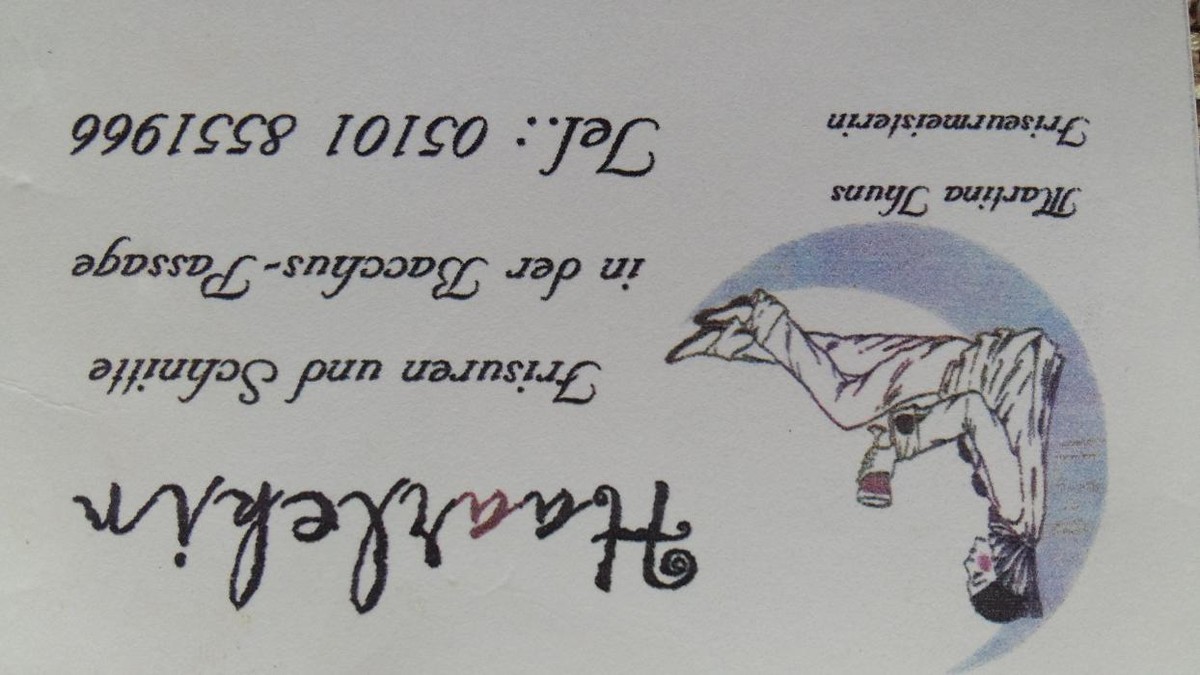 Haarlekin
Frisuren und Schnitte
in der Bacchus-Passage
Tel.: 05101 8551966
Martina Thuns
Friseurmeisterin